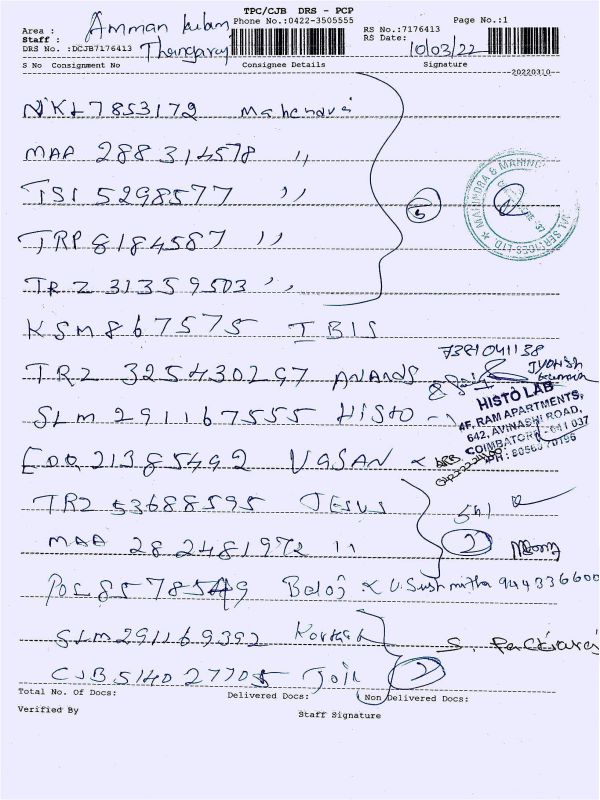 TPC/CJB DRS - PCP
Area : Amman kulam
Phone No.:0422-3505555
Page No.:1
Staff : Thangaraj
RS No.:7176413
RS Date: 10/03/22
DRS No. :DCJB7176413
S No Consignment No Consignee Details Signature
20220310
NKL7853172 Mahendra
MAA 288314578 ,,
TSI 5298577 ,,
TRP 8184587 ,,
TRZ 31359503 ,,
5
MAHINDRA & MAHIN
SERVICES LTD
KSM867575 IBIS
7321041138
TRZ 325430297 ANANDS
Jyothish
Kumar
SLM 291167555 HISTO
HISTO LAB
4F, RAM APARTMENTS,
642, AVINASHI ROAD,
COIMBATORE 641 037
PH: 80560 70196
EDQ21385492 VASAN
TRZ 53688595 JESUS
MAA 282481972 ,,
2
POL8578549 Balaj U.Sushmitha 944336600
SLM291169392
CJB514027705 Join
2
Total No. Of Docs: Delivered Docs: Non Delivered Docs:
Verified By Staff Signature